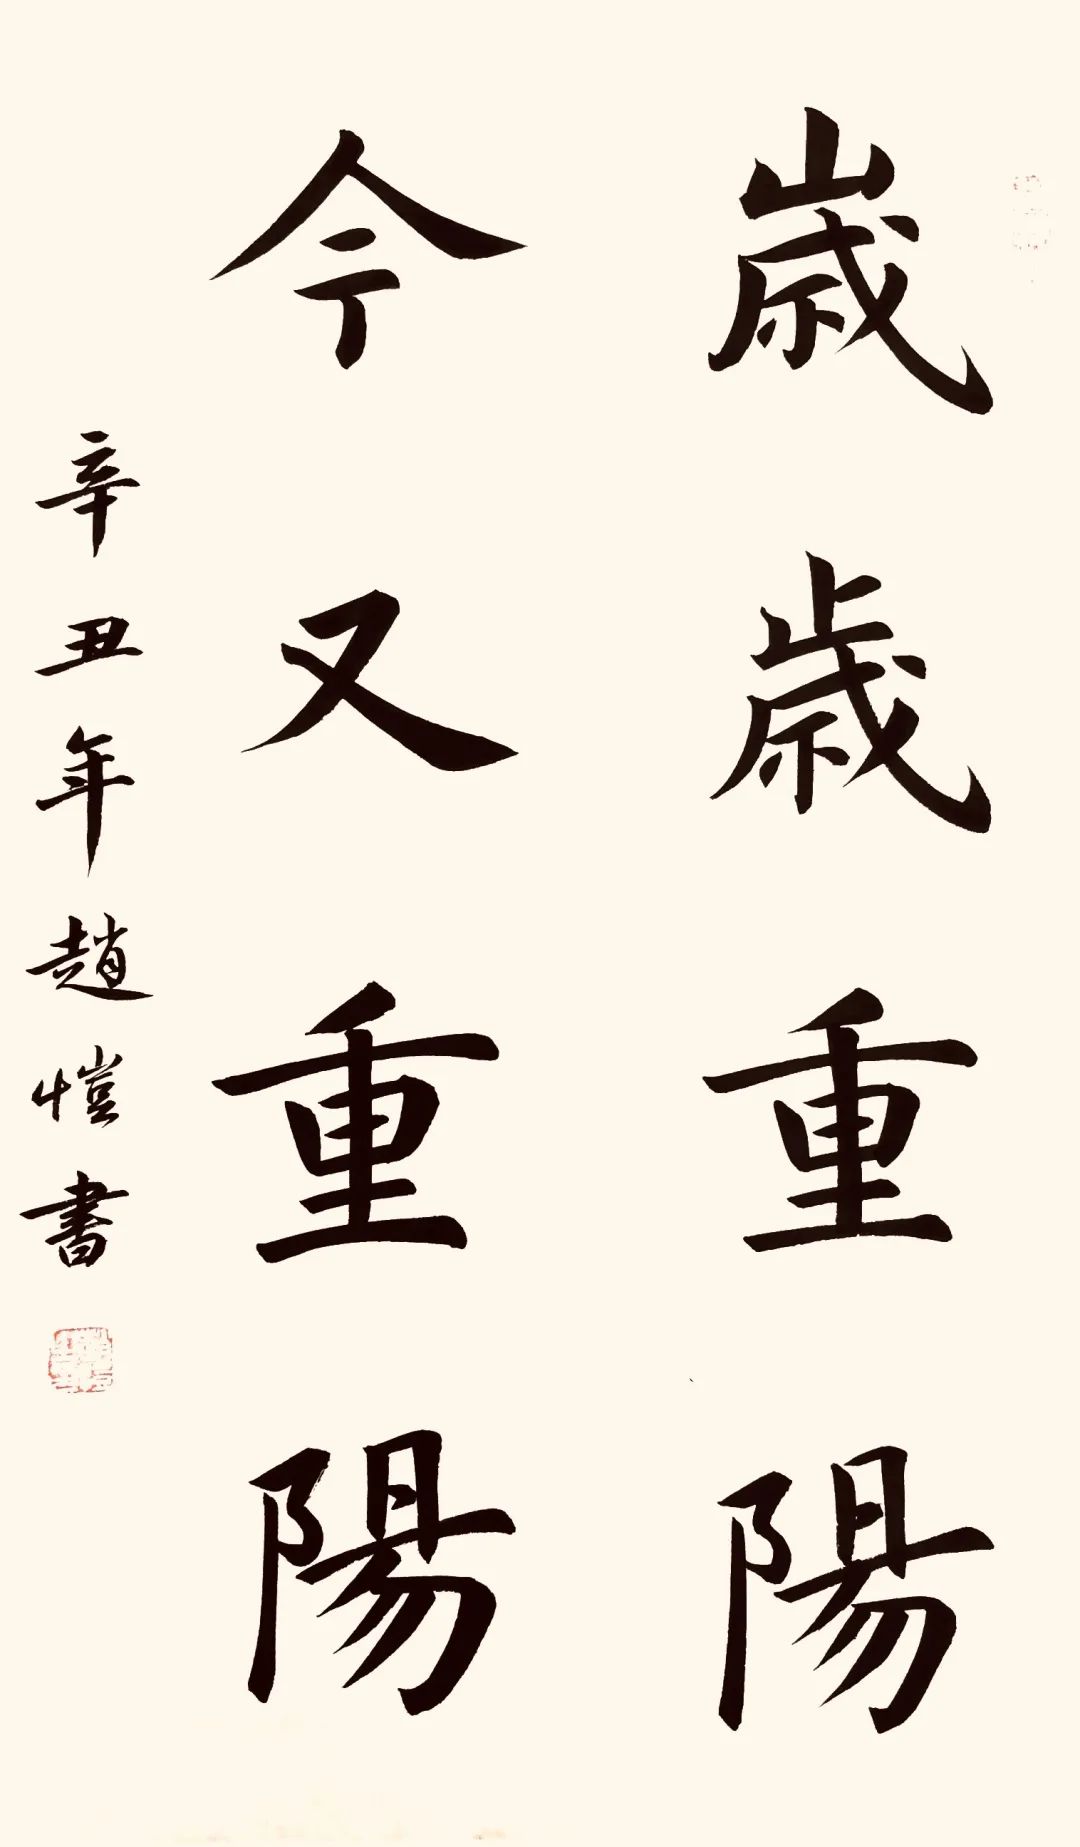 歲歲重陽
今又重陽
辛丑年趙愷書